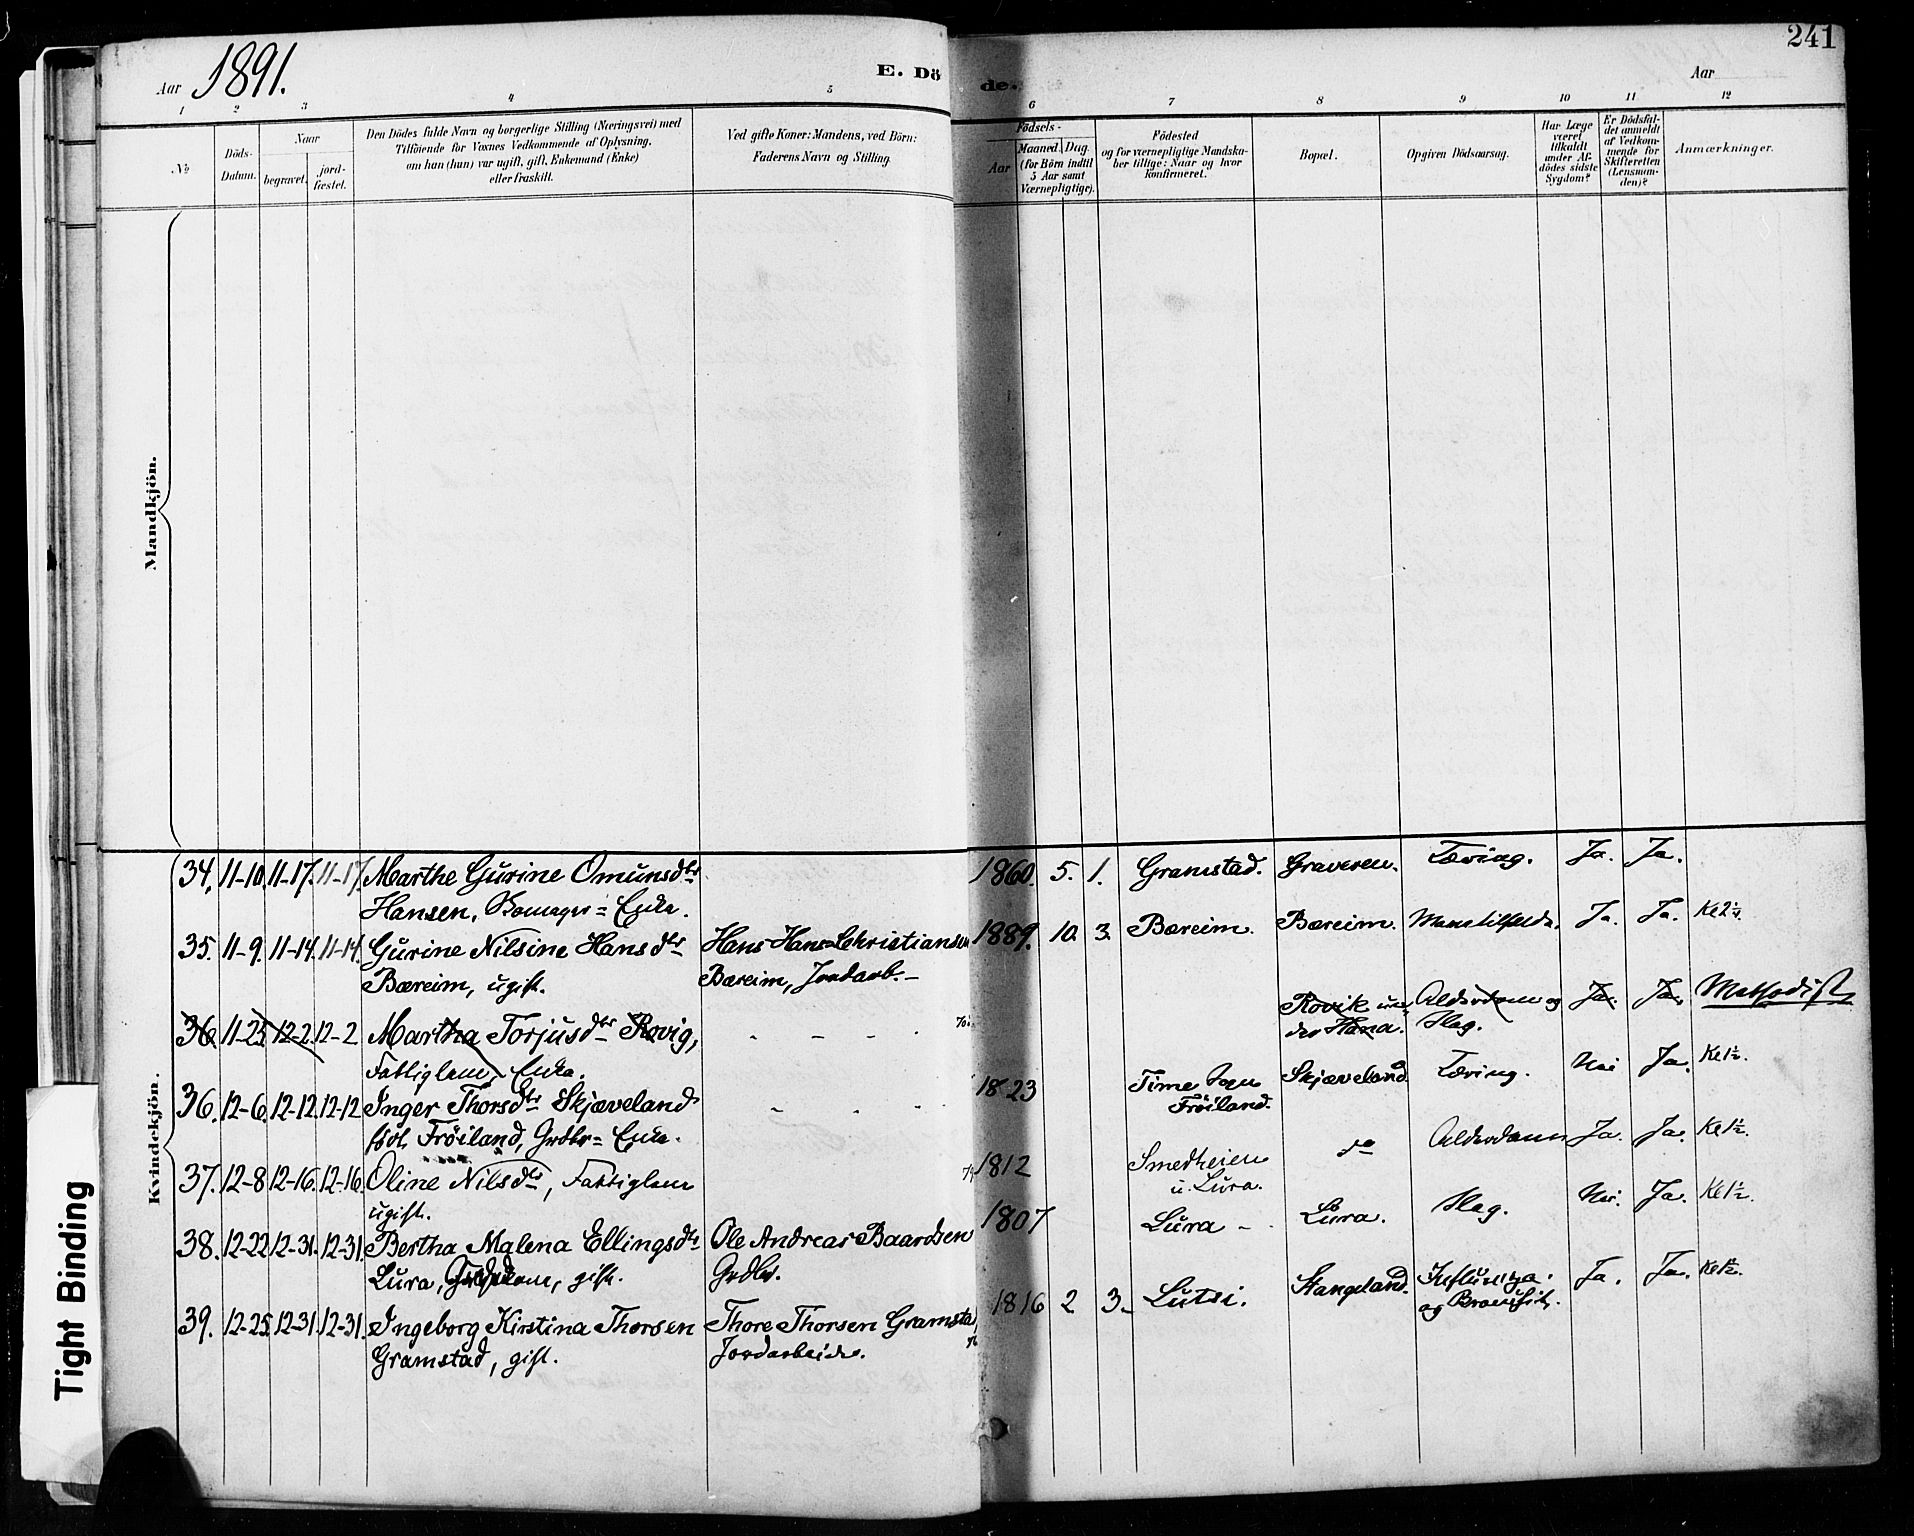 241
Aar 1891.
E. Dö
de.
Aar
1 2 3 4 5 6 7 8 9 10 11 12
No
Döds-
Datum.
Naar
begravet.
jord-
fæstet.
Den Dödes fulde Navn og borgerlige Stilling (Næringsvei) med
Tilföiende for Voxnes Vedkommende af Oplysning,
om han (hun) var ugift, gift, Enkemand (Enke)
eller fraskilt.
Ved gifte Koner: Mandens, ved Börn:
Faderens Navn og Stilling.
Födsels-
Aar
Maaned. Dag.
(for Börn indtil
5 Aar samt
Værnepligtige).
Födested
og for værnepligtige Mandska-
ber tillige: Naar og hvor
konfirmeret.
Bopæl.
Opgiven Dödsaarsag.
Har Læge
været
tilkaldt
under Af-
dödes sidste
Sygdom?
Er Dödsfal-
det anmeldt
af Vedkom-
mende for
Skifteretten
(Lensman-
den)?
Anmærkninger.
Mandkjön.
Kvindekjön.
34. 11-10. 11-17. 11-17. Marthe Gurine Omunsdtr 1860. 5. 1. Gramstad. Graveren. Tæring. Ja. Ja.
Hansen, Enke.
35. 11-9. 11-14. 11-14. Gurine Nilsine Hansdtr Hans Hans Christiansen 1889. 10. 3. Bæreim. Bæreim. Ja. Ja.
Bæreim, ugift. Bæreim, Jordarb.
36 11-25 12-2. 12-2 Martha Torjusdtr Rovig, - - - Rovik un- Alderdom og Ja. Ja. Methodist
Fattiglem, Enke. der Hana. Slag.
36. 12-6. 12-12. 12-12 Inger Thorsdtr Skjæveland - - - 1823 Time Sogn Skjæveland. Tæring. Nei Ja. Ke 1½.
föd. Fröiland, Grdbr= Enke. Fröiland.
37. 12-8 12-16. 12-16. Oline Nilsdtr, Fattiglem 1812 Smedheien do Alderdom Ja. Ja. Ke 1½.
ugift. u. Lura.
38. 12-22 12-31. 12-31. Bertha Malena Ellingsdtr Ole Andreas Baardsen 1807 Lura - Lura. Slag. Nei. Ja. Ke 1½.
Lura, gift. Grdbr.
39. 12-25. 12-31. 12-31. Ingeborg Kirstina Thorsen Thore Thorsen Gramstad, 1816 2 3. Lutsi. Stangeland. Influenza Ja. Ja.
Gramstad, gift. Jordarbeider. og
Tight Binding